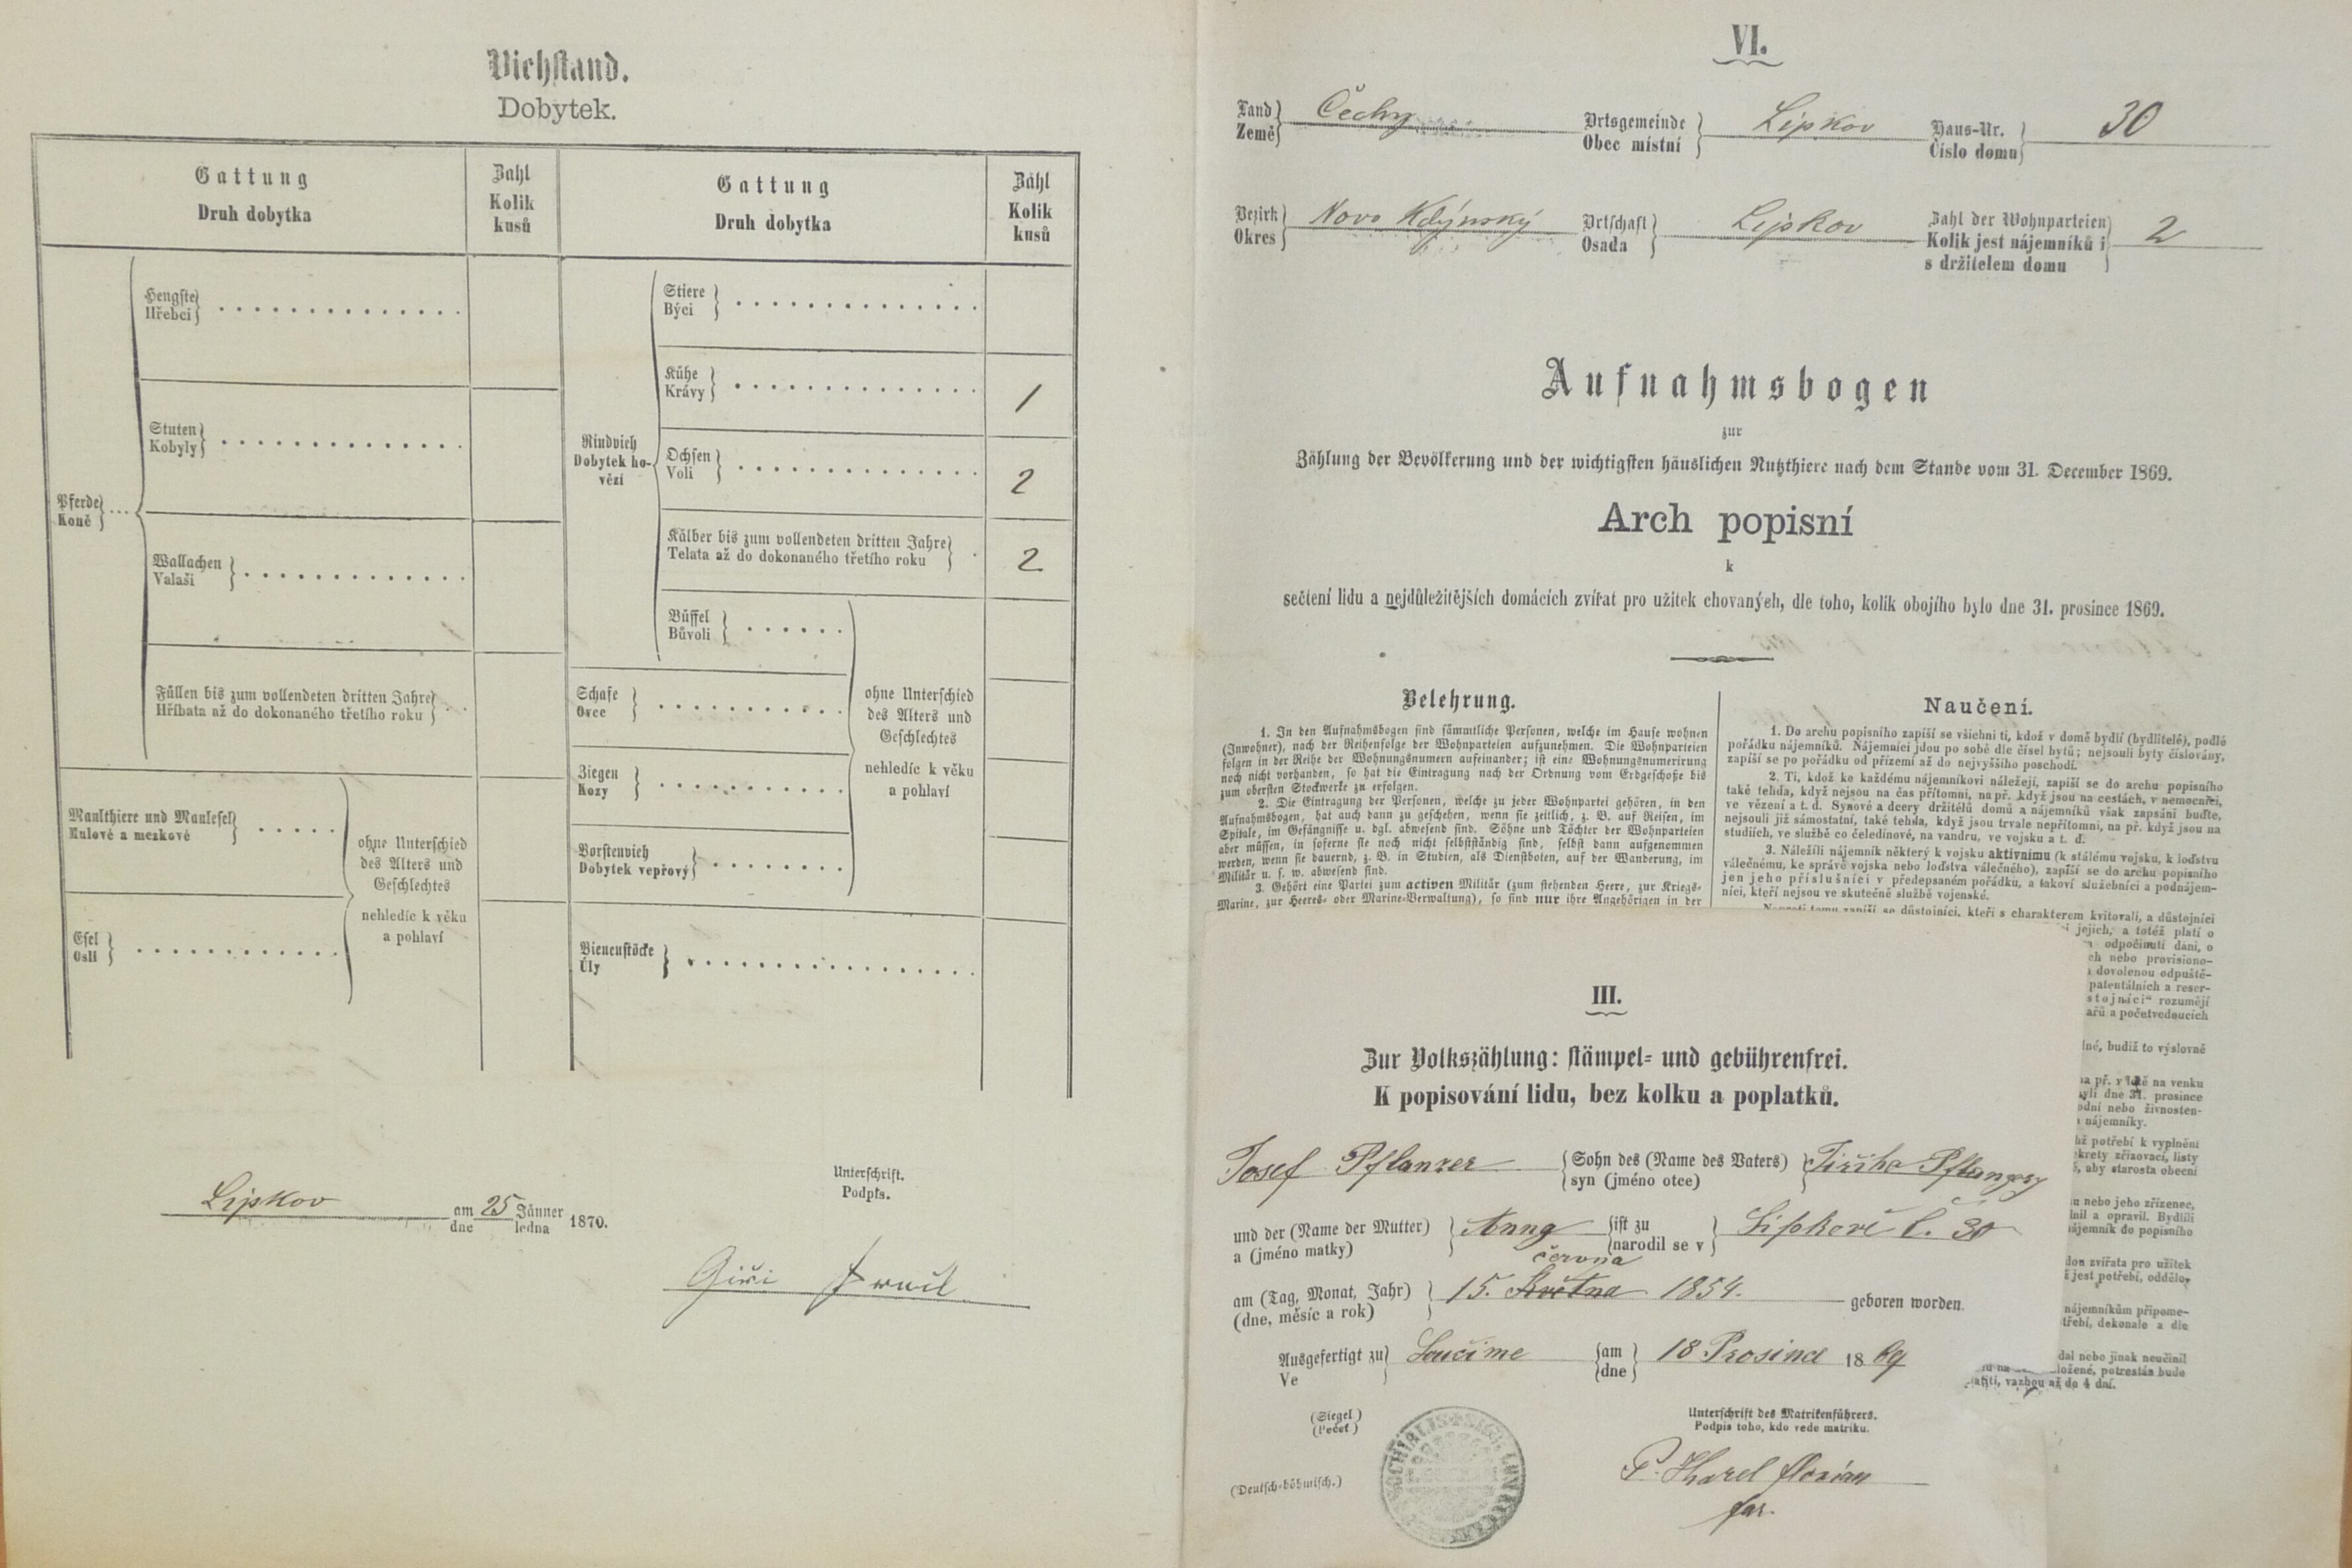 Viehstand.
Dobytek.
Gattung
Druh dobytka
Zahl
Kolik
kusů
Gattung
Druh dobytka
Zahl
Kolik
kusů
Pferde
Koně
Hengste
Hřebci
Stuten
Kobyly
Wallachen
Valaši
Füllen bis zum vollendeten dritten Jahre
Hříbata až do dokonaného třetího roku
Maulthiere und Maulesel
Mulové a mezkové
Esel
Osli
ohne Unterschied
des Alters und
Geschlechtes
nehledíc k věku
a pohlaví
Rindvieh
Dobytek ho-
vězí
Stiere
Býci
Kühe
Krávy
1
Ochsen
Voli
2
Kälber bis zum vollendeten dritten Jahre
Telata až do dokonaného třetího roku
2
Büffel
Bůvoli
Schafe
Ovce
Ziegen
Kozy
Borstenvieh
Dobytek vepřový
ohne Unterschied
des Alters und
Geschlechtes
nehledíc k věku
a pohlaví
Bienenstöcke
Úly
Lipkov am 25 Jänner 1870.
dne ledna
Unterschrift.
Podpis.
Giři
VI.
Land Čechy Ortsgemeinde Lipkov Haus-Nr. 30
Země Obec místní Číslo domu
Bezirk Novo Kdýnský Ortschaft Lipkov Zahl der Wohnparteien 2
Okres Osada Kolik jest nájemníků i
s držitelem domu
Aufnahmsbogen
zur
Zählung der Bevölkerung und der wichtigsten häuslichen Nutzthiere nach dem Stande vom 31. December 1869.
Arch popisní
k
sečtení lidu a nejdůležitějších domácích zvířat pro užitek chovaných, dle toho, kolik obojího bylo dne 31. prosince 1869.
Belehrung.
1. In den Aufnahmsbogen sind sämmtliche Personen, welche im Hause wohnen
(Inwohner), nach der Reihenfolge der Wohnparteien aufzunehmen. Die Wohnparteien
folgen in der Reihe der Wohnungsnumern aufeinander; ist eine Wohnungsnumerirung
noch nicht vorhanden, so hat die Eintragung nach der Ordnung vom Erdgeschoße bis
zum obersten Stockwerke zu erfolgen.
2. Die Eintragung der Personen, welche zu jeder Wohnpartei gehören, in den
Aufnahmsbogen, hat auch dann zu geschehen, wenn sie zeitlich, z. B. auf Reisen, im
Spitale, im Gefängnisse u. dgl. abwesend sind. Söhne und Töchter der Wohnparteien
aber müssen, in soferne sie noch nicht selbstständig sind, selbst dann aufgenommen
werden, wenn sie dauernd, z. B. in Studien, als Dienstboten, auf der Wanderung, im
Militär u. s. w. abwesend sind.
3. Gehört eine Partei zum activen Militär (zum stehenden Heere, zur Kriegs-
Marine, zur Heeres- oder Marine-Verwaltung), so sind nur ihre Angehörigen in der
Naučení.
1. Do archu popisního zapíší se všichni ti, kdož v domě bydlí (bydlitelé), podlé
pořádku nájemníků. Nájemníci jdou po sobě dle čísel bytů; nejsouli byty číslovány,
zapíší se po pořádku od přízemí až do nejvyššího poschodí.
2. Ti, kdož ke každému nájemníkovi náležejí, zapíší se do archu popisního
také tehda, když nejsou na čas přítomni, na př. když jsou na cestách, v nemocnici,
ve vězení a t. d. Synové a dcery držitelů domů a nájemníků však zapsáni buďte,
nejsouli již sámostatní, také tehda, když jsou trvale nepřítomni, na př. když jsou na
studiích, ve službě co čeledínové, na vandru, ve vojsku a t. d.
3. Náležíli nájemník některý k vojsku aktivnímu (k stálému vojsku, k loďstvu
válečnému, ke správě vojska nebo loďstva válečného), zapíší se do archu popisního
jen jeho příslušníci v předepsaném pořádku, a takoví služebníci a podnájem-
níci, kteří nejsou ve skutečné službě vojenské.
Naproti tomu zapíší se důstojníci, kteří s charakterem kvitovali, a důstojníci
jejich, a totéž platí o
odpočinutí dáni, o
ch nebo provisiono-
dovolenou odpuště-
patentálních a reser-
stojníci“ rozumějí
ařů a početvedoucích
lné, budiž to výslovně
na venku
prosince
odní nebo živnosten-
nájemníky.
potřebí k vyplnění
krety zřizovací, listy
aby starosta obecní
nebo jeho zřízenec,
lnil a opravil. Bydlíli
nájemník do popisního
don zvířata pro užitek
jest potřebí, oddělo-
nájemníkům připome-
třebí, dokonale a dle
dal nebo jinak neučinil
ložené, potrestán bude
vazbou až do 4 dní.
III.
Zur Volkszählung: stämpel- und gebührenfrei.
K popisování lidu, bez kolku a poplatků.
Josef Pflanzer Sohn des (Name des Vaters) Jiřího Pflanzry
syn (jméno otce)
und der (Name der Mutter) Anny ist zu Lipkově č. 30
a (jméno matky) narodil se v
června
am (Tag, Monat, Jahr) 15. Května 1854. geboren worden.
(dne, měsíc a rok)
Ausgefertigt zu Loučime am 18 Prosince 1869
Ve dne
(Siegel)
(Pečeť)
Unterschrift des Matrikenführers.
Podpis toho, kdo vede matriku.
(Deutsch-böhmisch.)
P. Karel Florian
far.